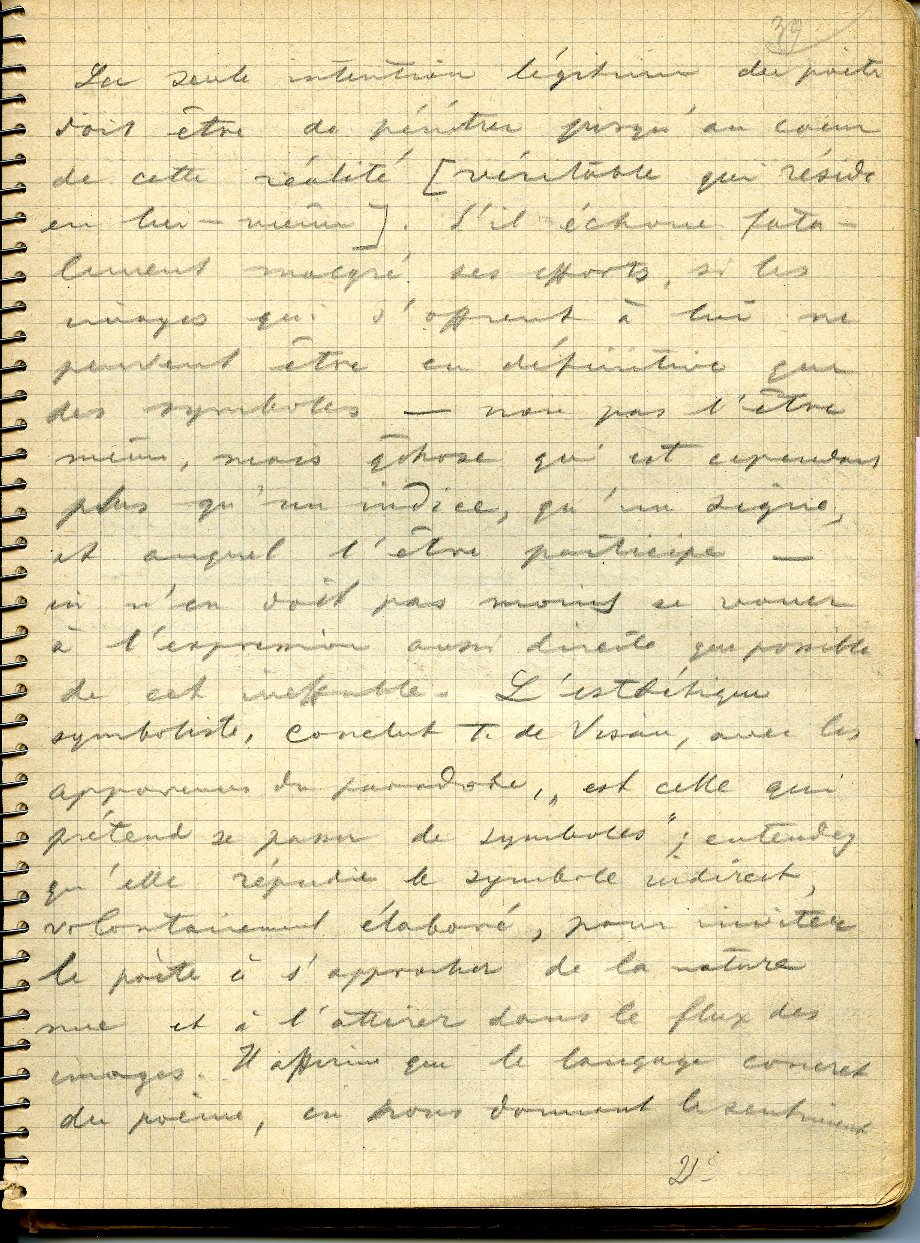 39
La seule intention légitime du poète
doit être de pénétrer jusqu'au coeur
de cette réalité [véritable qui réside
en lui-même]. S'il échoue fata-
lement malgré ses efforts, si les
images qui s'offrent à lui ne
peuvent être en définitive que
des symboles — non pas l'être
même, mais qchose qui est cependant
plus qu'un indice, qu'un signe,
et auquel l'être participe —
il n'en doit pas moins se vouer
à l'expression aussi directe que possible
de cet ineffable. L'esthétique
symboliste, conclut T. de Visan, avec les
apparences du paradoxe, „est celle qui
prétend se passer de symboles"; entendez
qu'elle répudie le symbole indirect,
volontairement élaboré, pour inviter
le poète à s'approcher de la nature
nue et à l'attirer dans le flux des
images. Il affirme que le langage concret
du poème, en nous donnant le sentiment